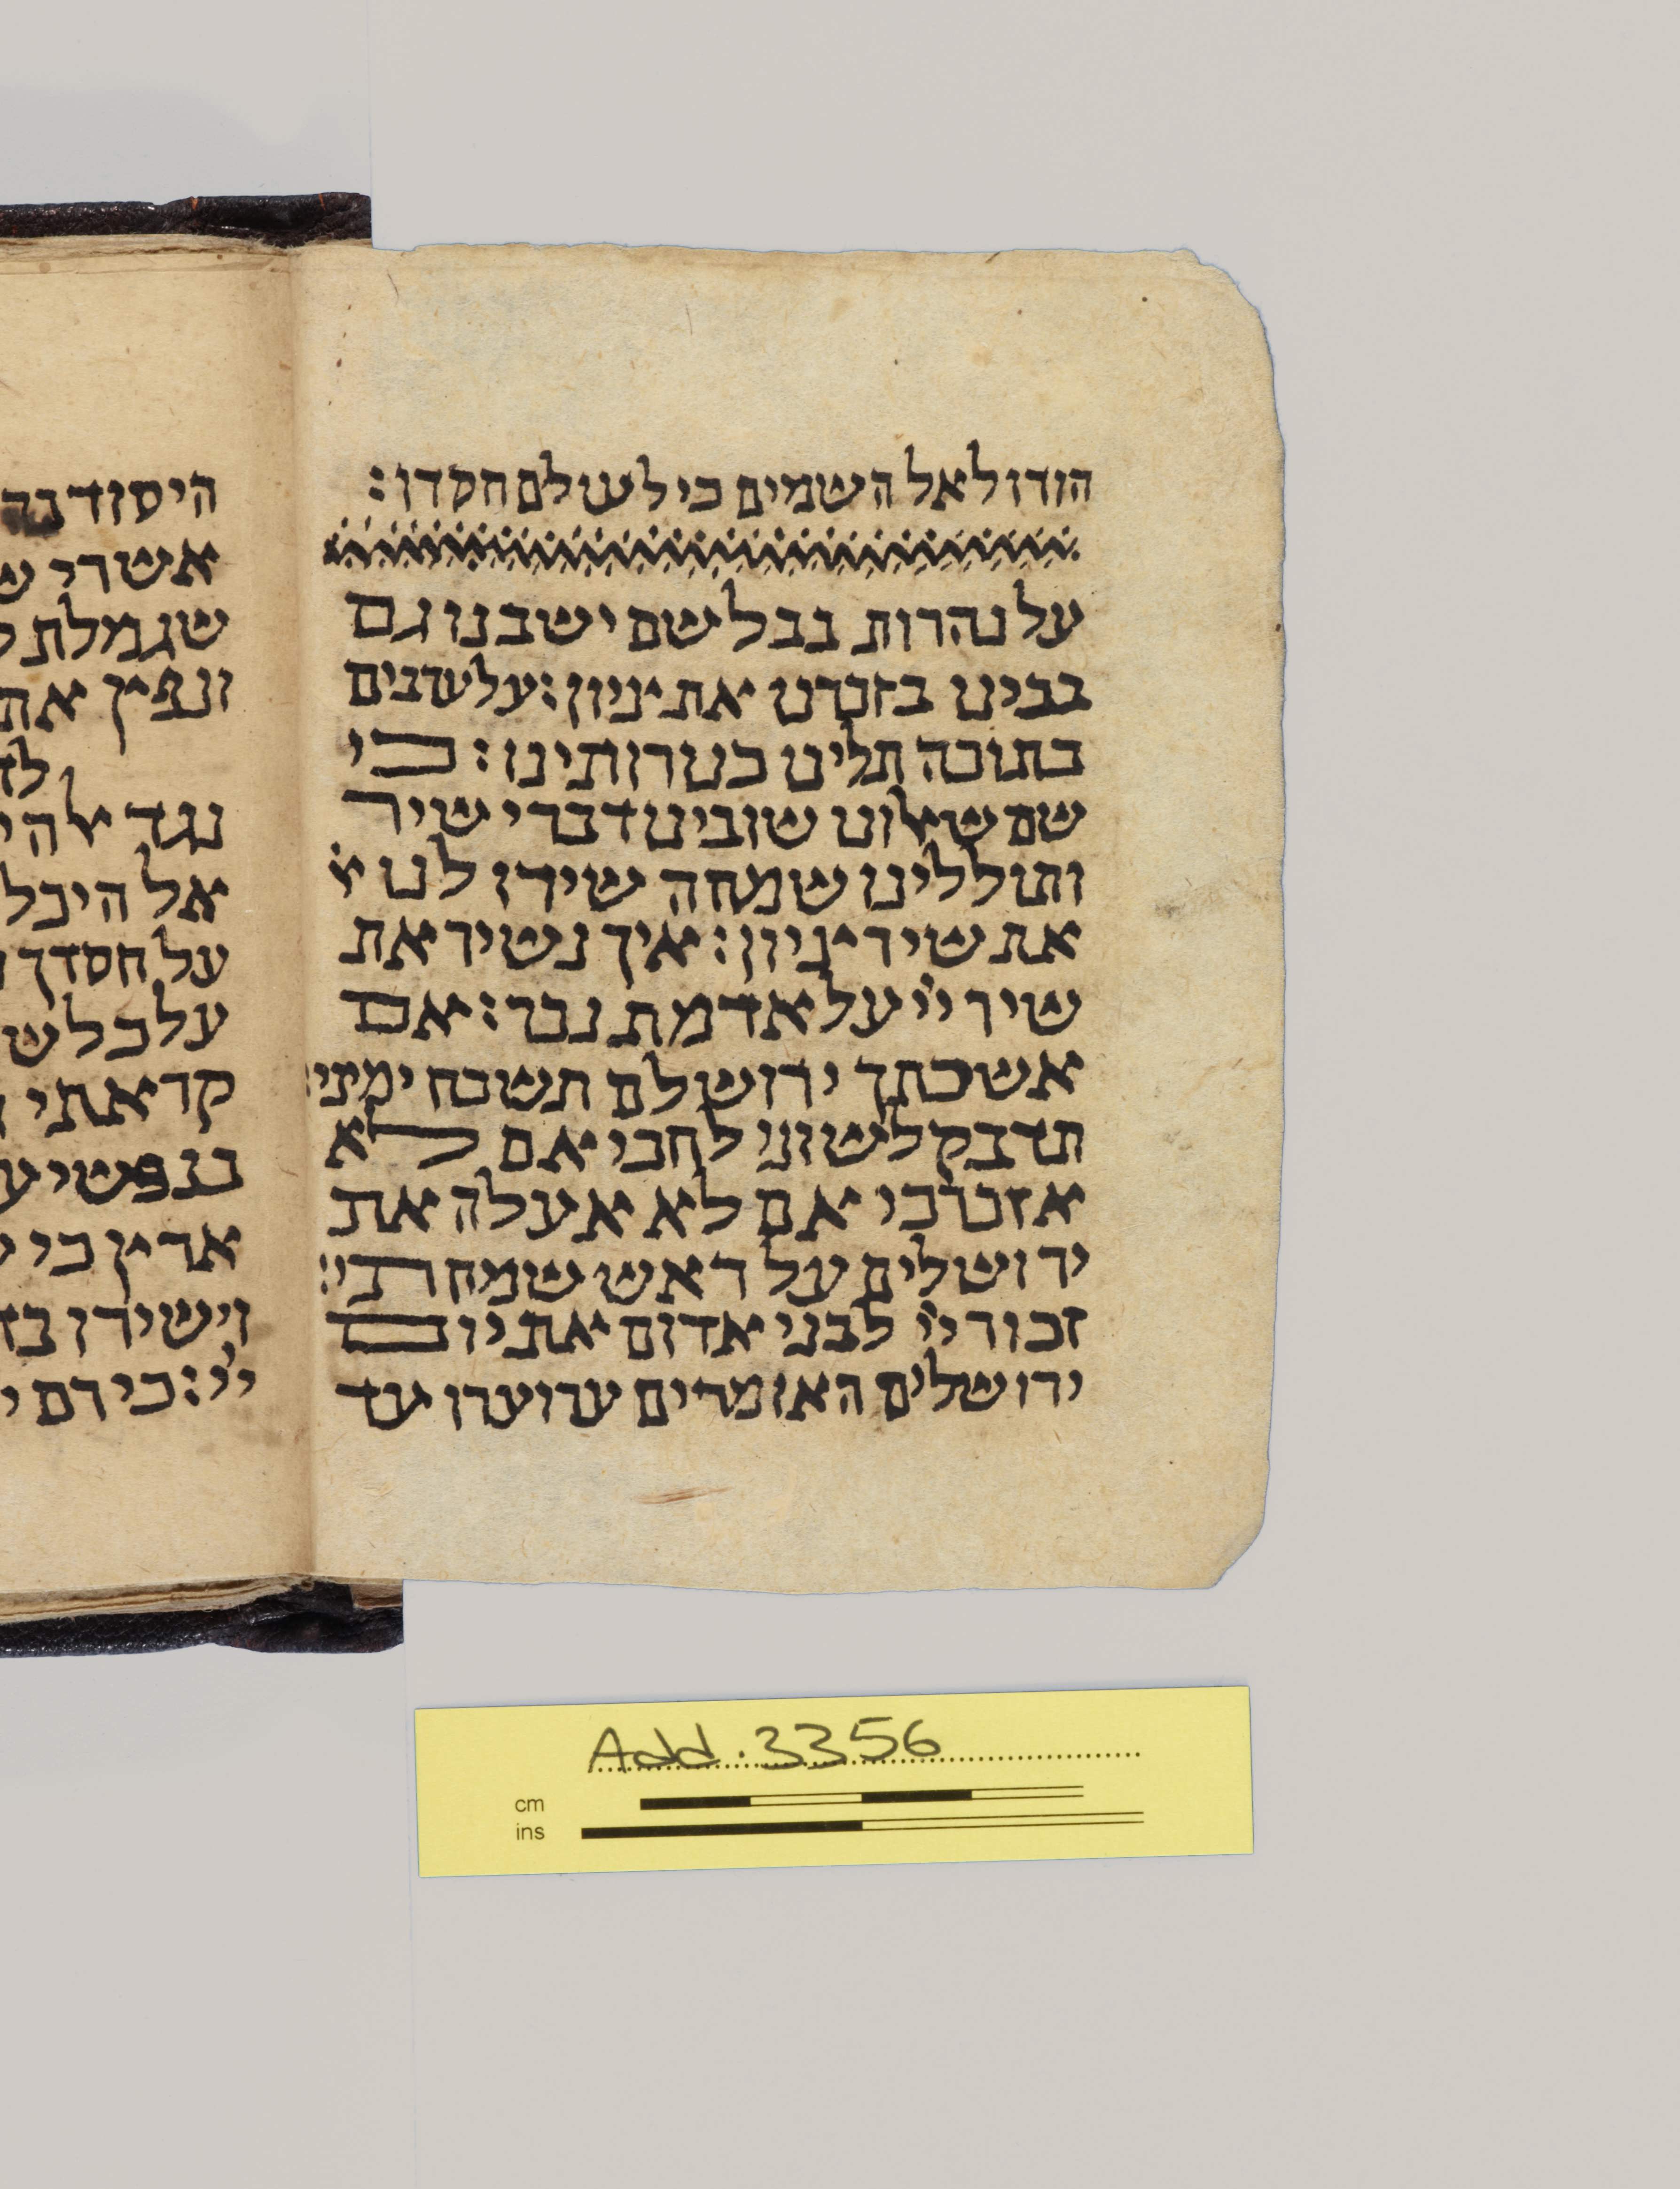 הודו לאל השמים כי לעולם חסדו :
על נהרות בבל שם ישבנו גם
בכינו בזכרנו את ציון : על ערבים
בתוכה תלינו כנורותינו : כי
שם שאלונו שובינו דברי שיר
ותוללינו שמחה שירו לנו
את שיר ציון : איך נשיר את
שיר ייי על אדמת נכר : אם
אשכחך ירושלם תשכח ימיני :
תדבק לשוני לחכי אם לא
אזכרכי אם לא אעלה את
ירושלים על ראש שמחתי :
זכור ייי לבני אדום את יום
ירושלים האומרים ערו ערו עד
היסוד
אשרי
שגמלת
ונפץ את
נגד
אל היכל
על חסדך
על כל
קראתי
בנפשי
ארץ כי
וישירו
ייי : כי רם
Add. 3356
cm
ins